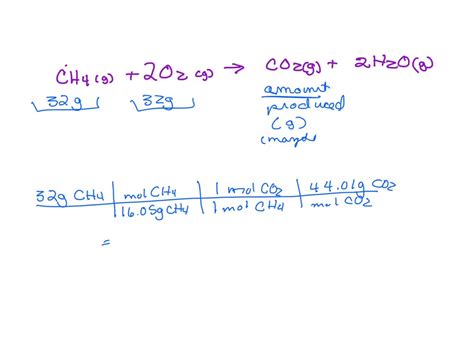 CH4(g) + 2O2(g) → CO2(g) + 2H2O(g)
32g 32g amount
produced
(g)
(maybe
32g CH4 | mol CH4 | 1 mol CO2 | 44.01g CO2
16.05g CH4 | 1 mol CH4 | mol CO2
=